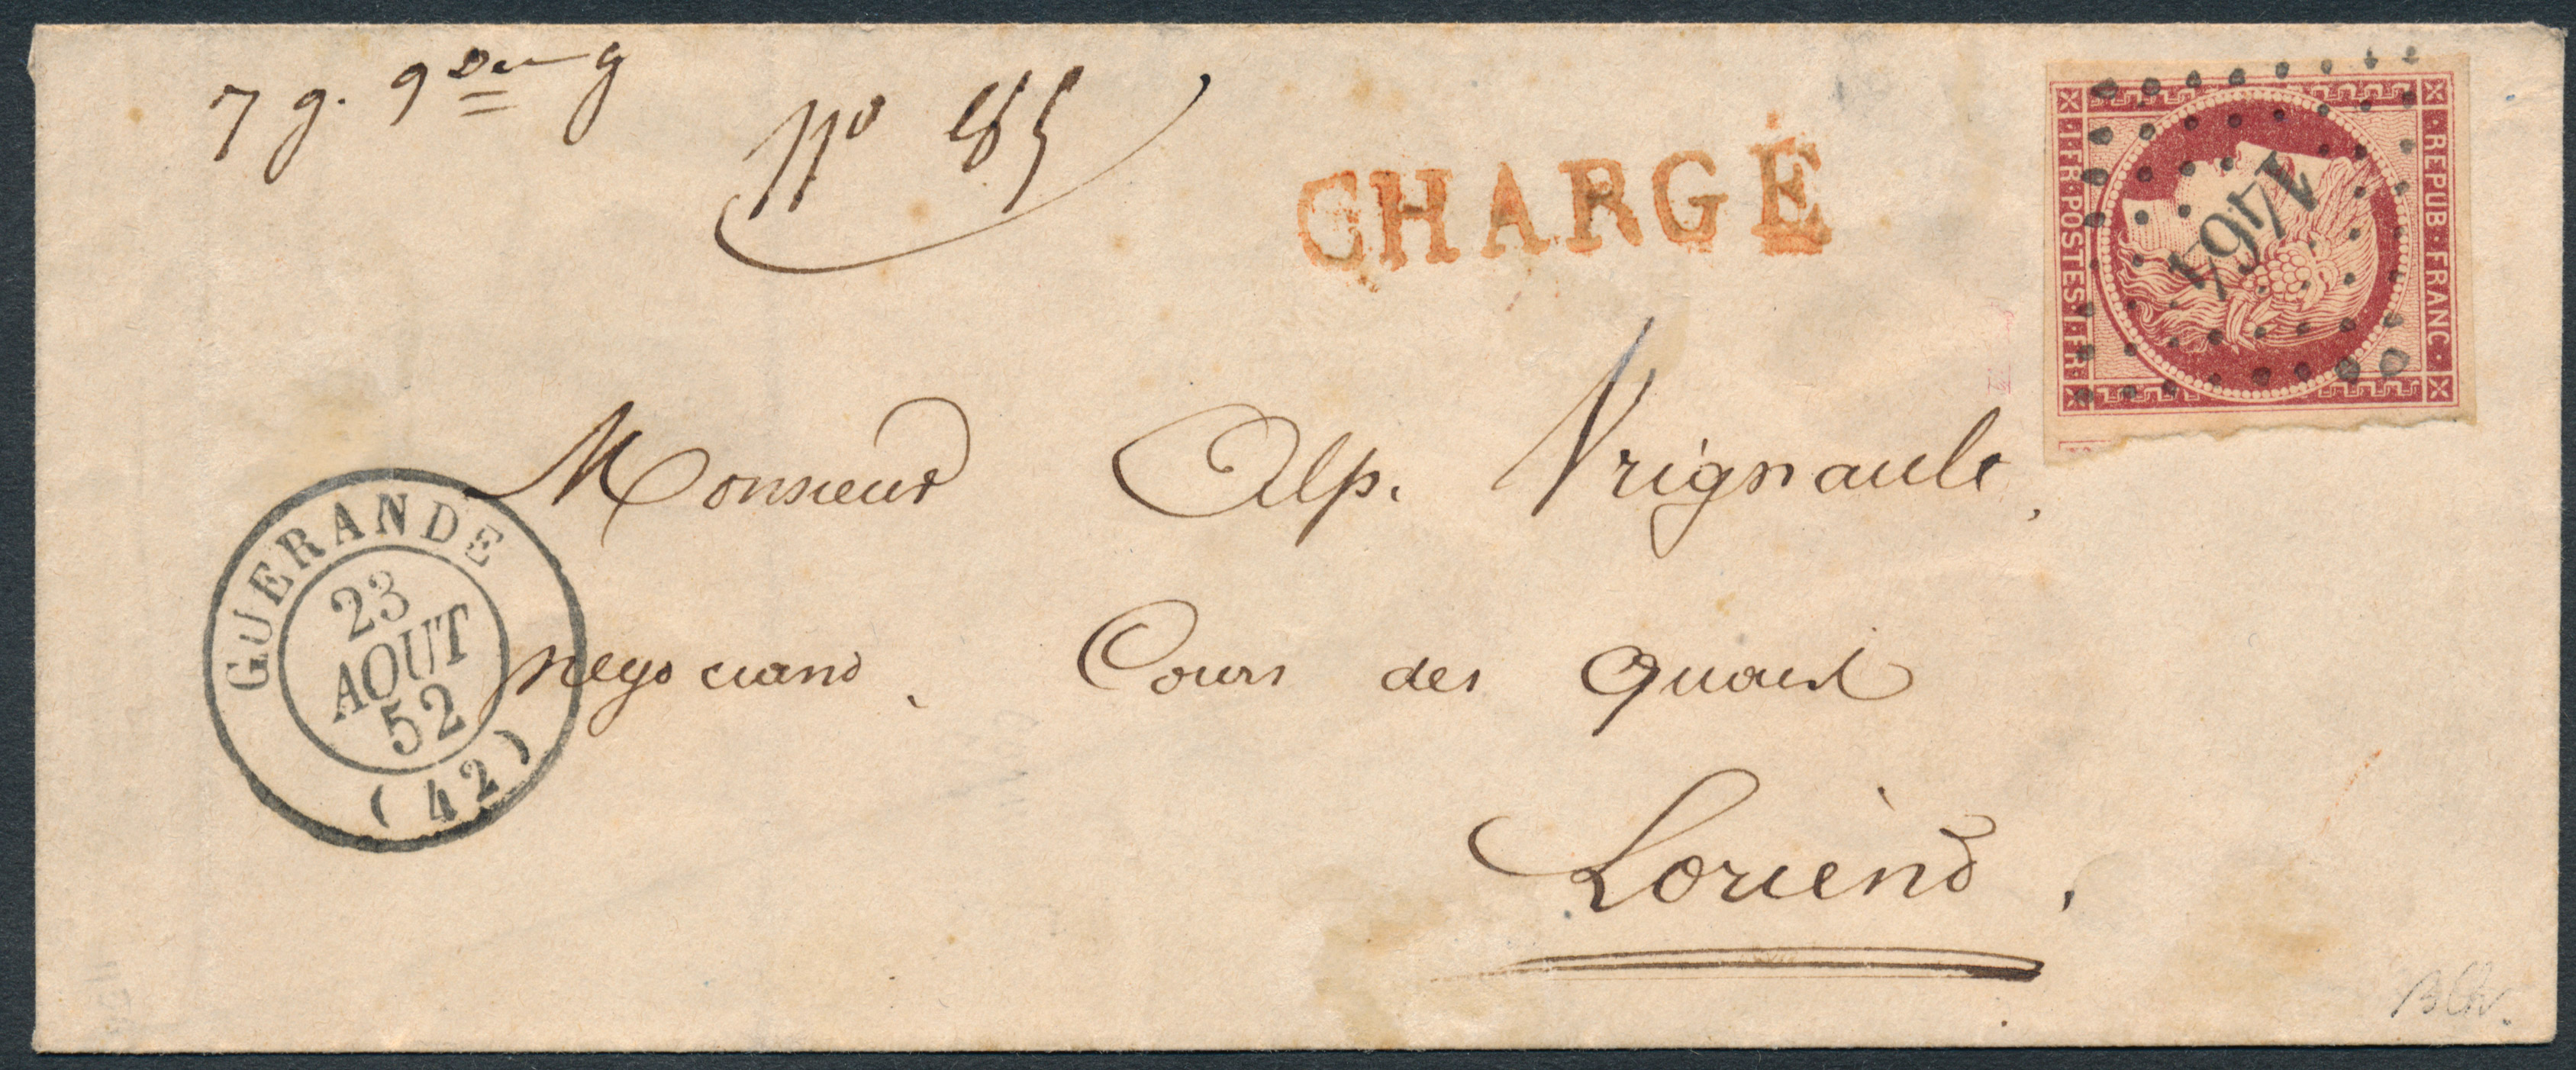 7 g. 9 Deg g
No 85
CHARGÉ
REPUB·FRANC·
1·FR·POSTES·1·FR·
1464
Monsieur Alp. Vrignault,
negociant. Cours des Quais
Lorient.
GUERANDE
23
AOUT
52
(42)